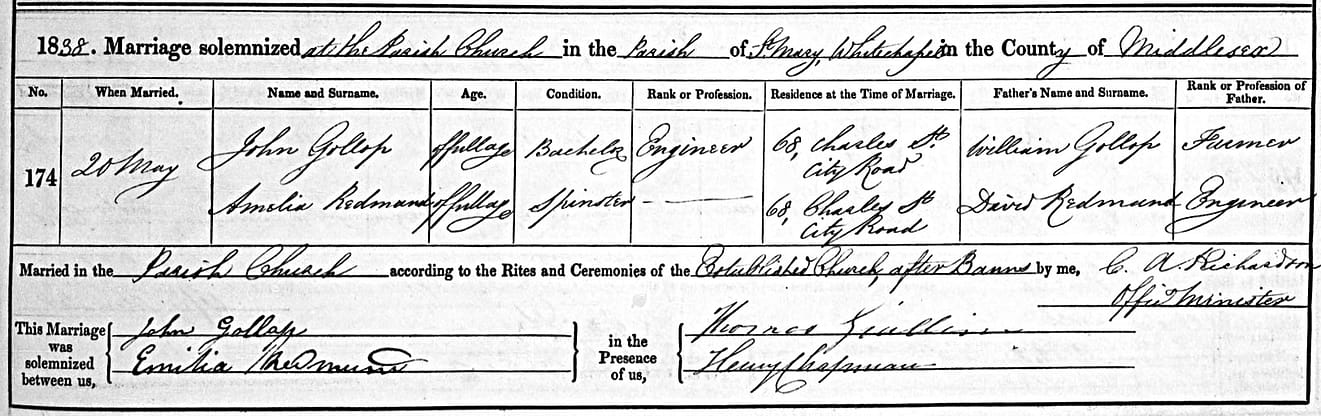 1838. Marriage solemnized at the Parish Church in the Parish of St Mary, Whitechapel in the County of Middlesex
No. When Married. Name and Surname. Age. Condition. Rank or Profession. Residence at the Time of Marriage. Father's Name and Surname. Rank or Profession of Father.
174 20 May John Gollop of full age Bachelor Engineer 68, Charles St. City Road William Gollop Farmer
Amelia Redmund of full age Spinster 68, Charles St City Road David Redmund Engineer
Married in the Parish Church according to the Rites and Ceremonies of the Established Church, after Banns by me, C. A Richardson
Offic Minister
This Marriage was solemnized between us, John Gollop in the Presence of us, Thomas
Emilia Redmund Henry Chapman